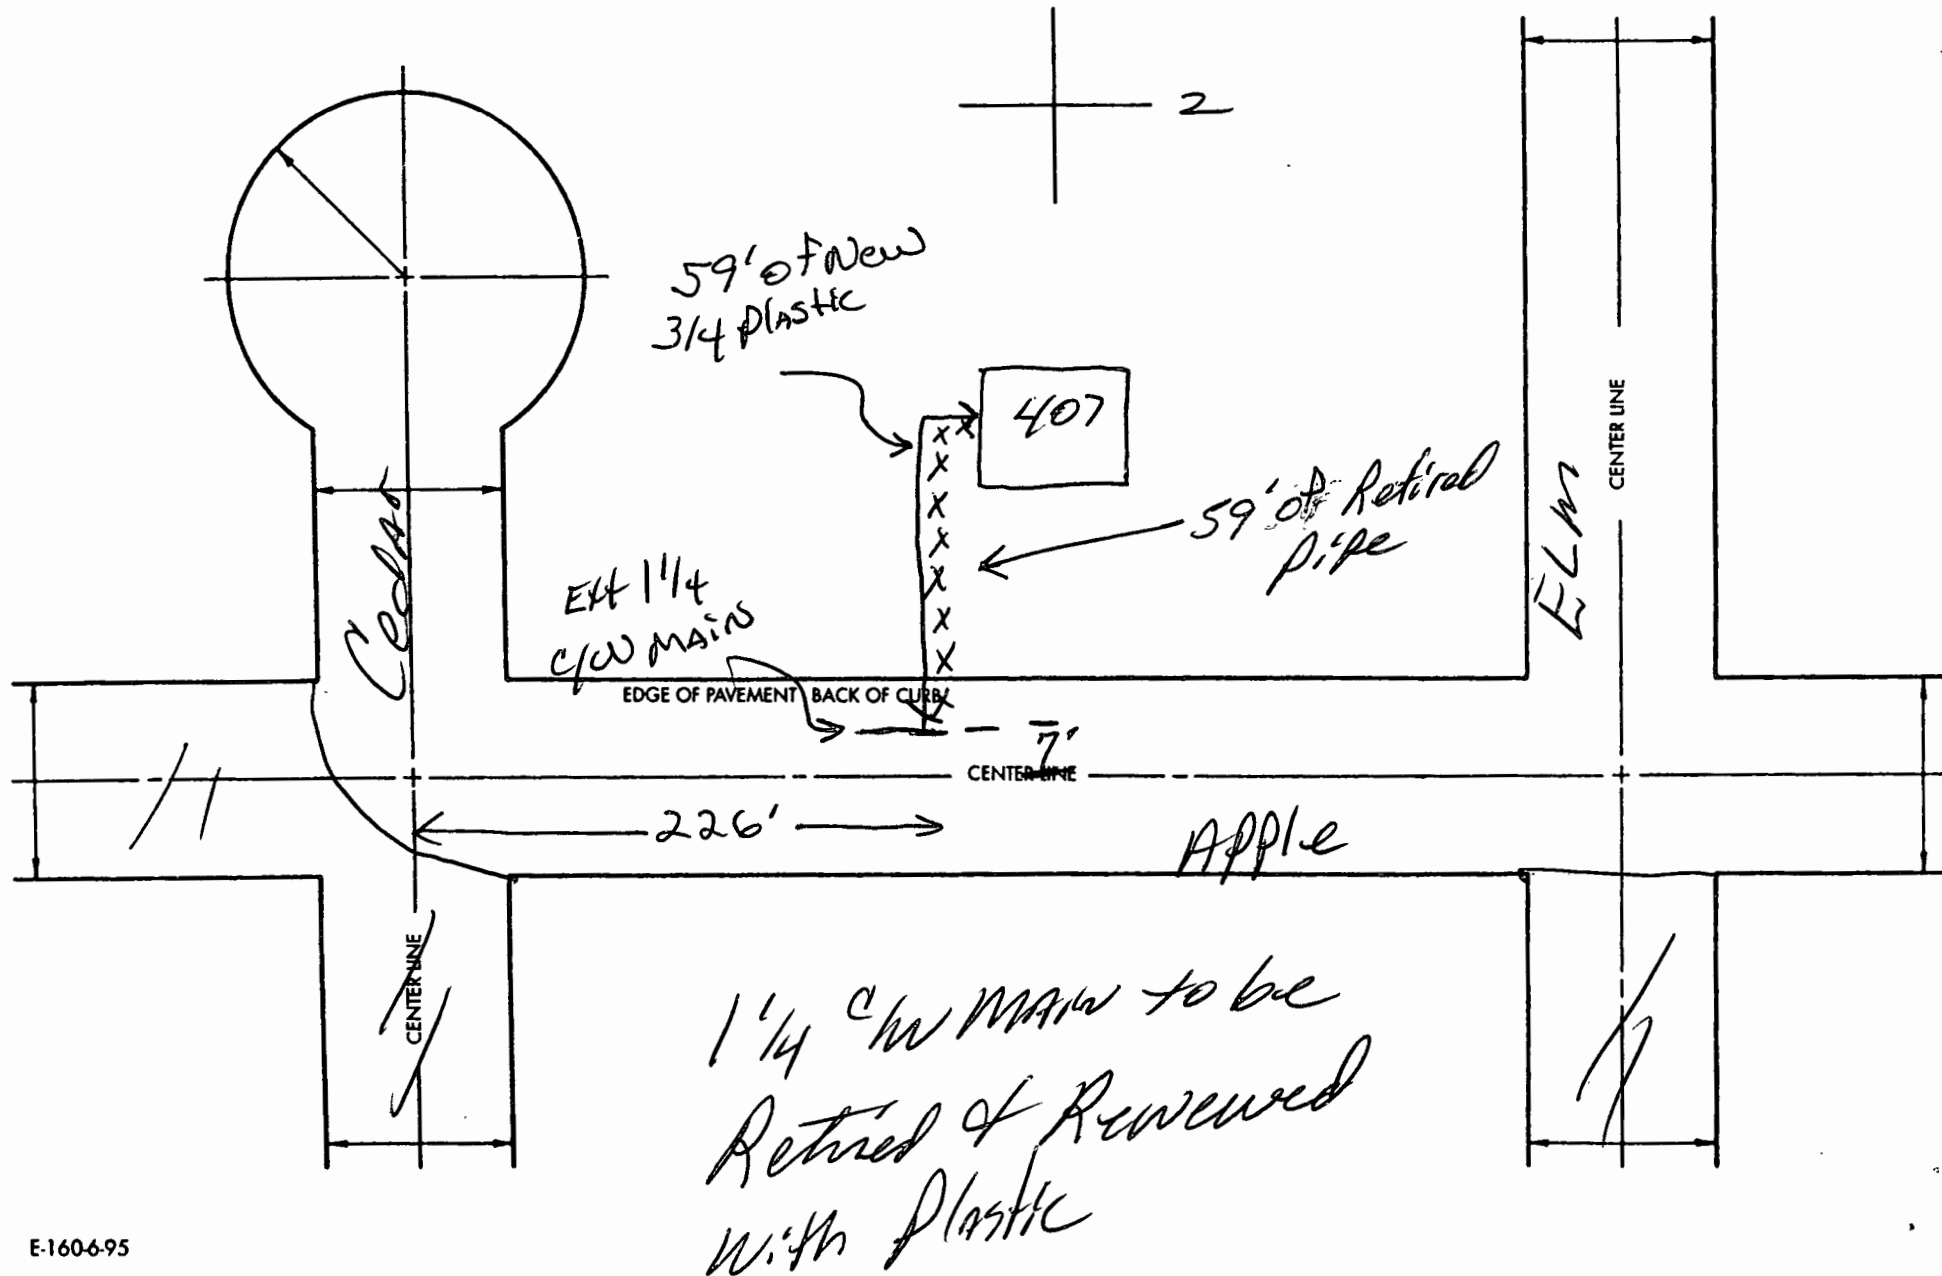 2
59' of New
3/4 Plastic
407
CENTER LINE
Cedar
59' of Retired
Pipe
ELM
Ext 1 1/4
C/W MAIN
EDGE OF PAVEMENT BACK OF CURB
7'
CENTER LINE
226'
Apple
CENTER LINE
1 1/4 C/W MAIN to be
Retired & Renewed
With Plastic
E-160-6-95